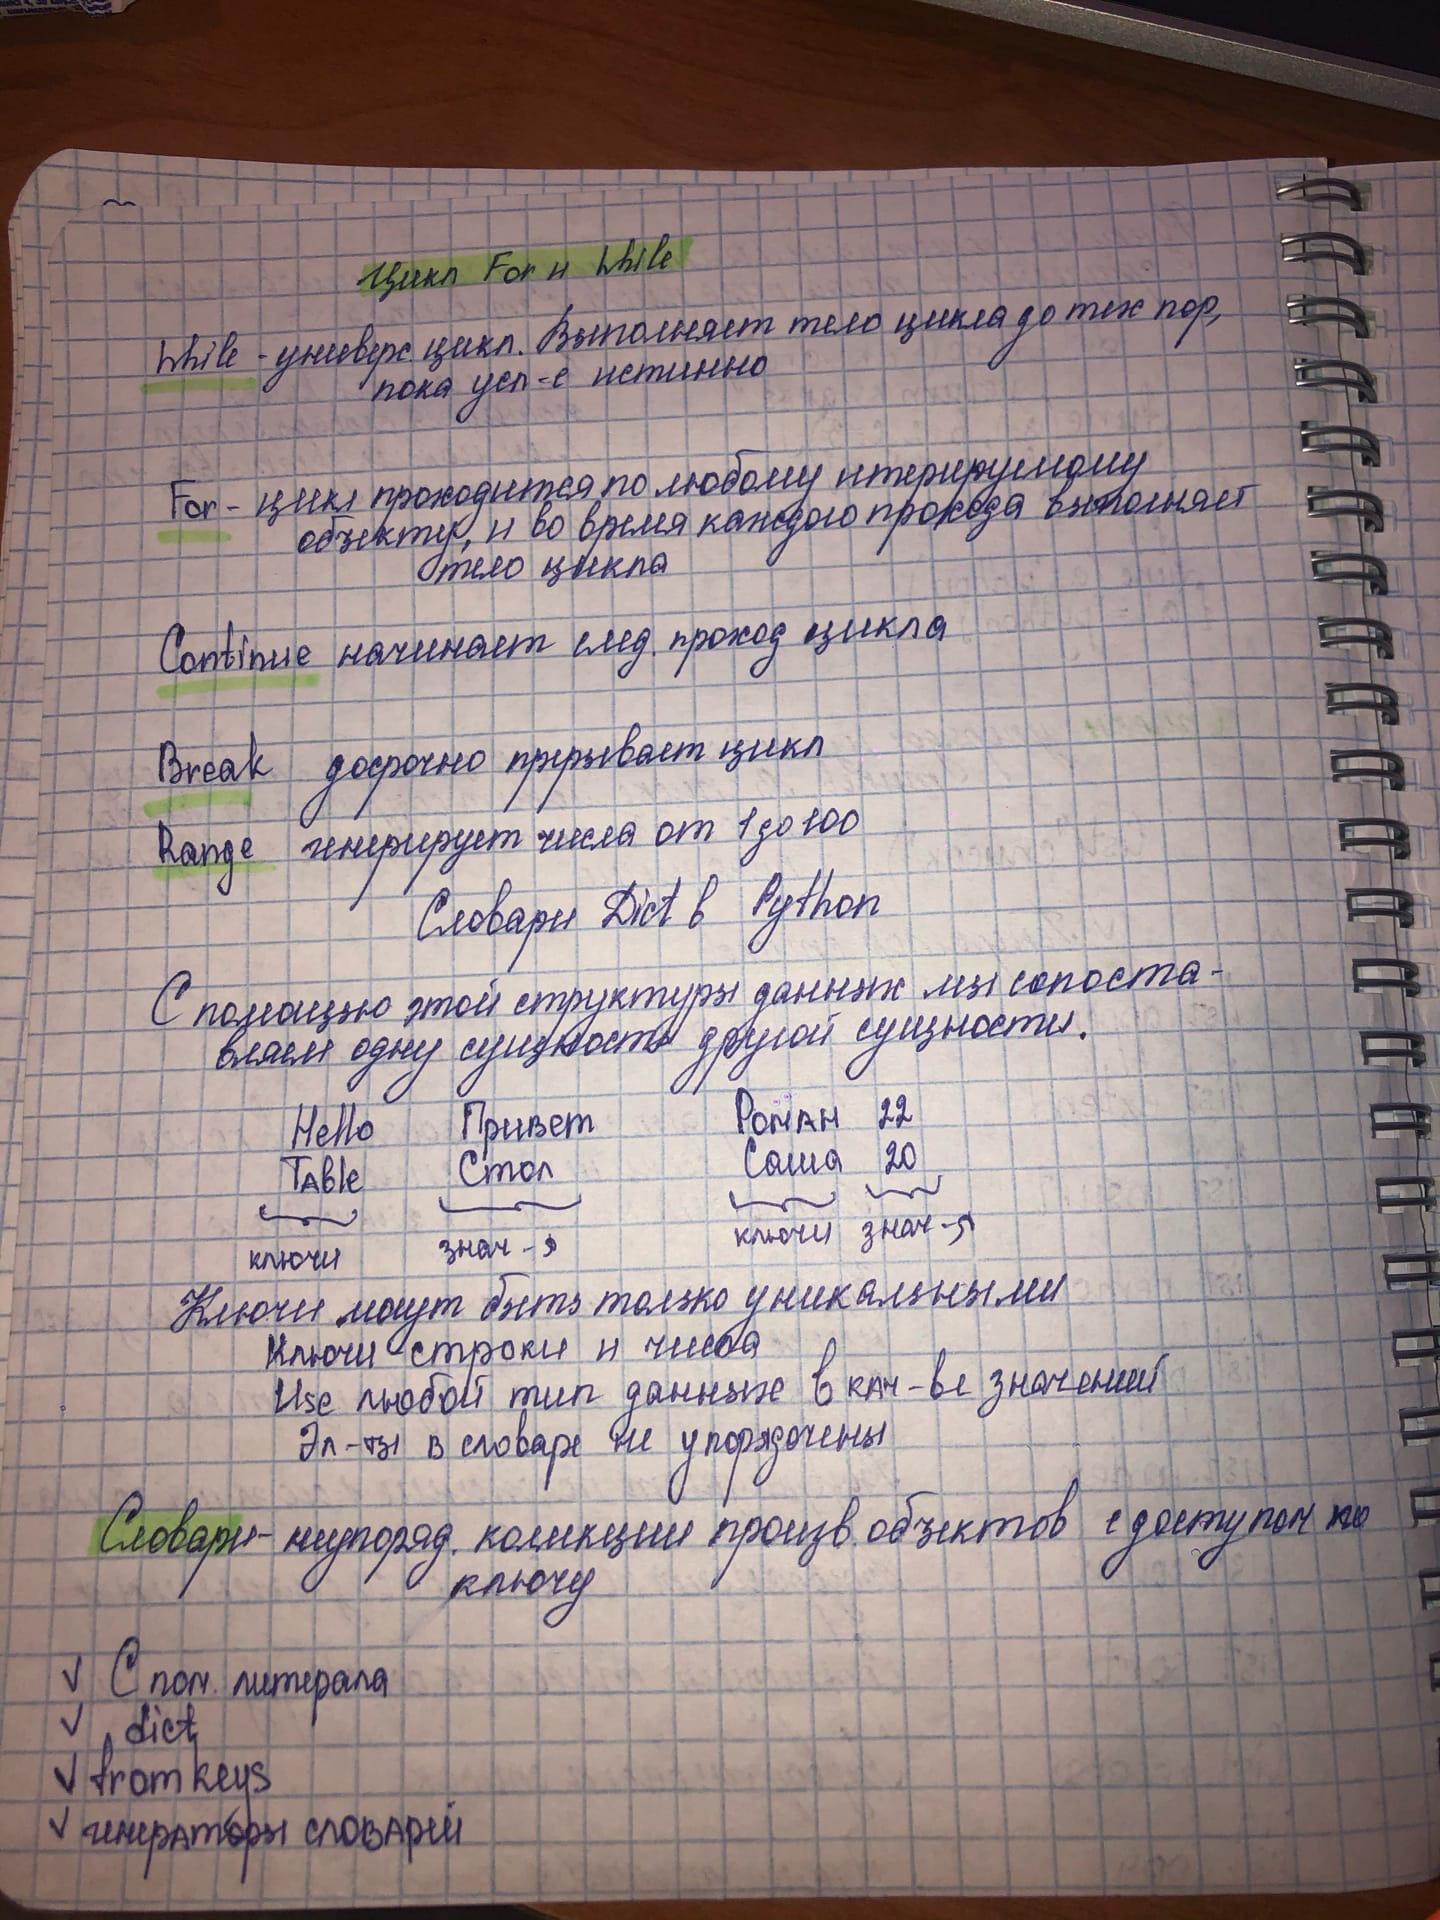 Цикл For и While
While - универс. цикл. Выполняет тело цикла до тех пор,
пока усл-е истинно
For - цикл проходится по любому итерируемому
объекту, и во время каждого прохода выполняет
тело цикла
Continue начинает след. проход цикла
Break досрочно прерывает цикл
Range генерирует числа от 1 до 100
Словари Dict в Python
С помощью этой структуры данных мы сопоста-
вляем одну сущность другой сущности.
Hello Привет Роман 22
Table Стол Саша 20
ключи знач-я ключи знач-я
Ключи могут быть только уникальными
Ключи строки и числа
Use любой тип данных в кач-ве значений
Эл-ты в словаре не упорядочены
Словари - неупоряд. колекции произв. объектов с доступом по
ключу
√ С пом. литерала
√ dict
√ fromkeys
√ генераторы словарей